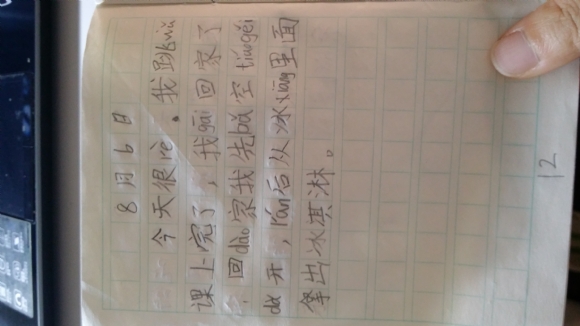 8月6日
今天很rè。我跳wǔ
课上完了，我gāi回家了
。回dào家我先bǎ空tiáogěi
dǎ开，rán后从冰xiāng里面
拿出冰淇淋。
12